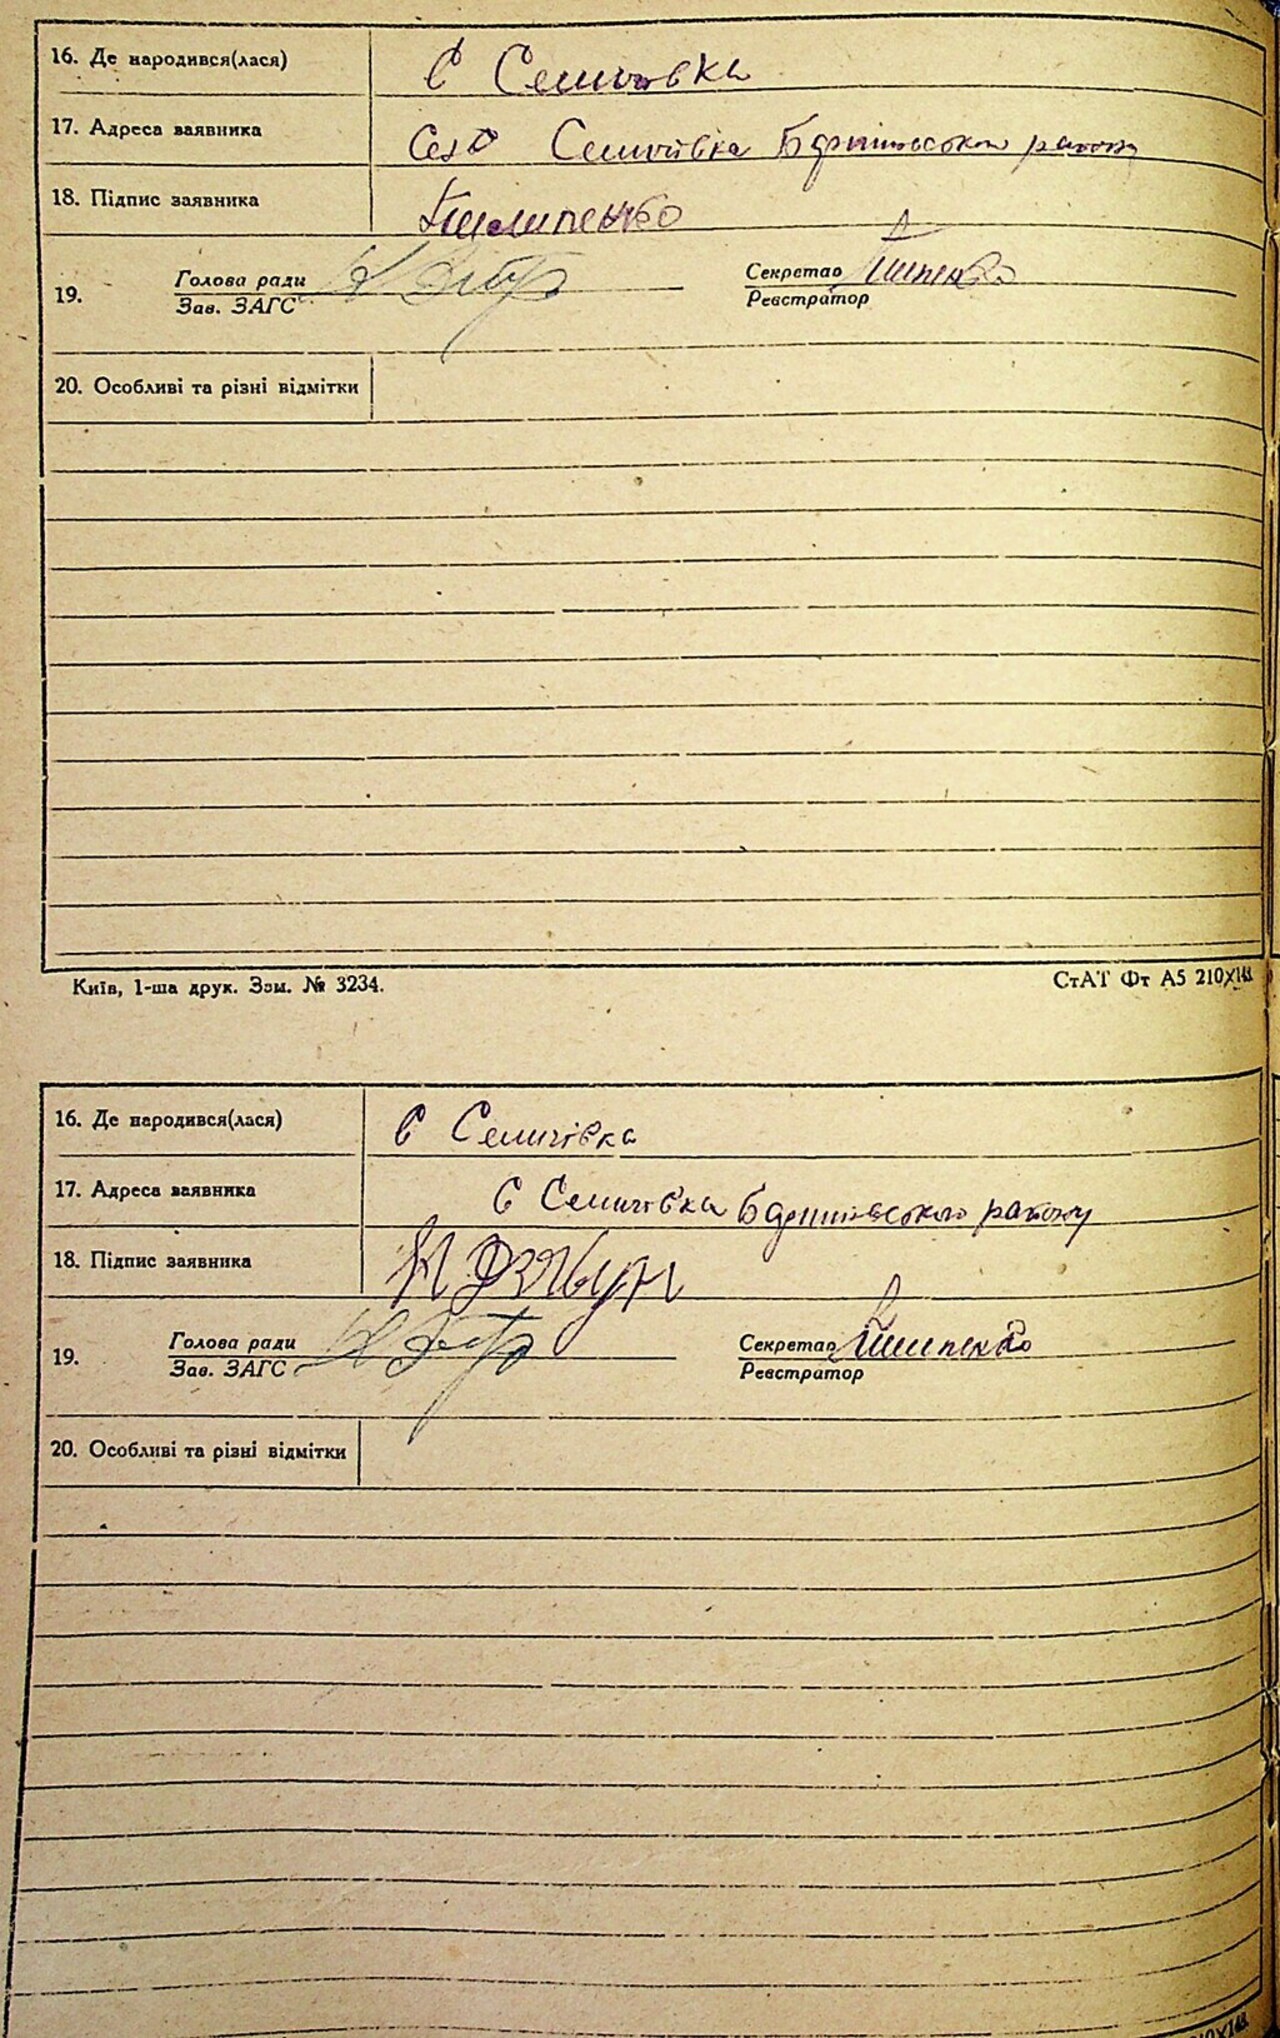 16. Де народився(лася) с Семиовка
17. Адреса заявника село Семиівка Баришівського району
18. Підпис заявника Пилипенко
Голова ради Секретар
19.
Зав. ЗАГС Реєстратор
20. Особливі та різні відмітки
Київ, 1-ша друк. Зам. № 3234. СтАТ Фт А5 210Х148
16. Де народився(лася) с Семиівка
17. Адреса заявника с Семиівка Баришівського району
18. Підпис заявника
Голова ради Секретар
19.
Зав. ЗАГС Реєстратор
20. Особливі та різні відмітки